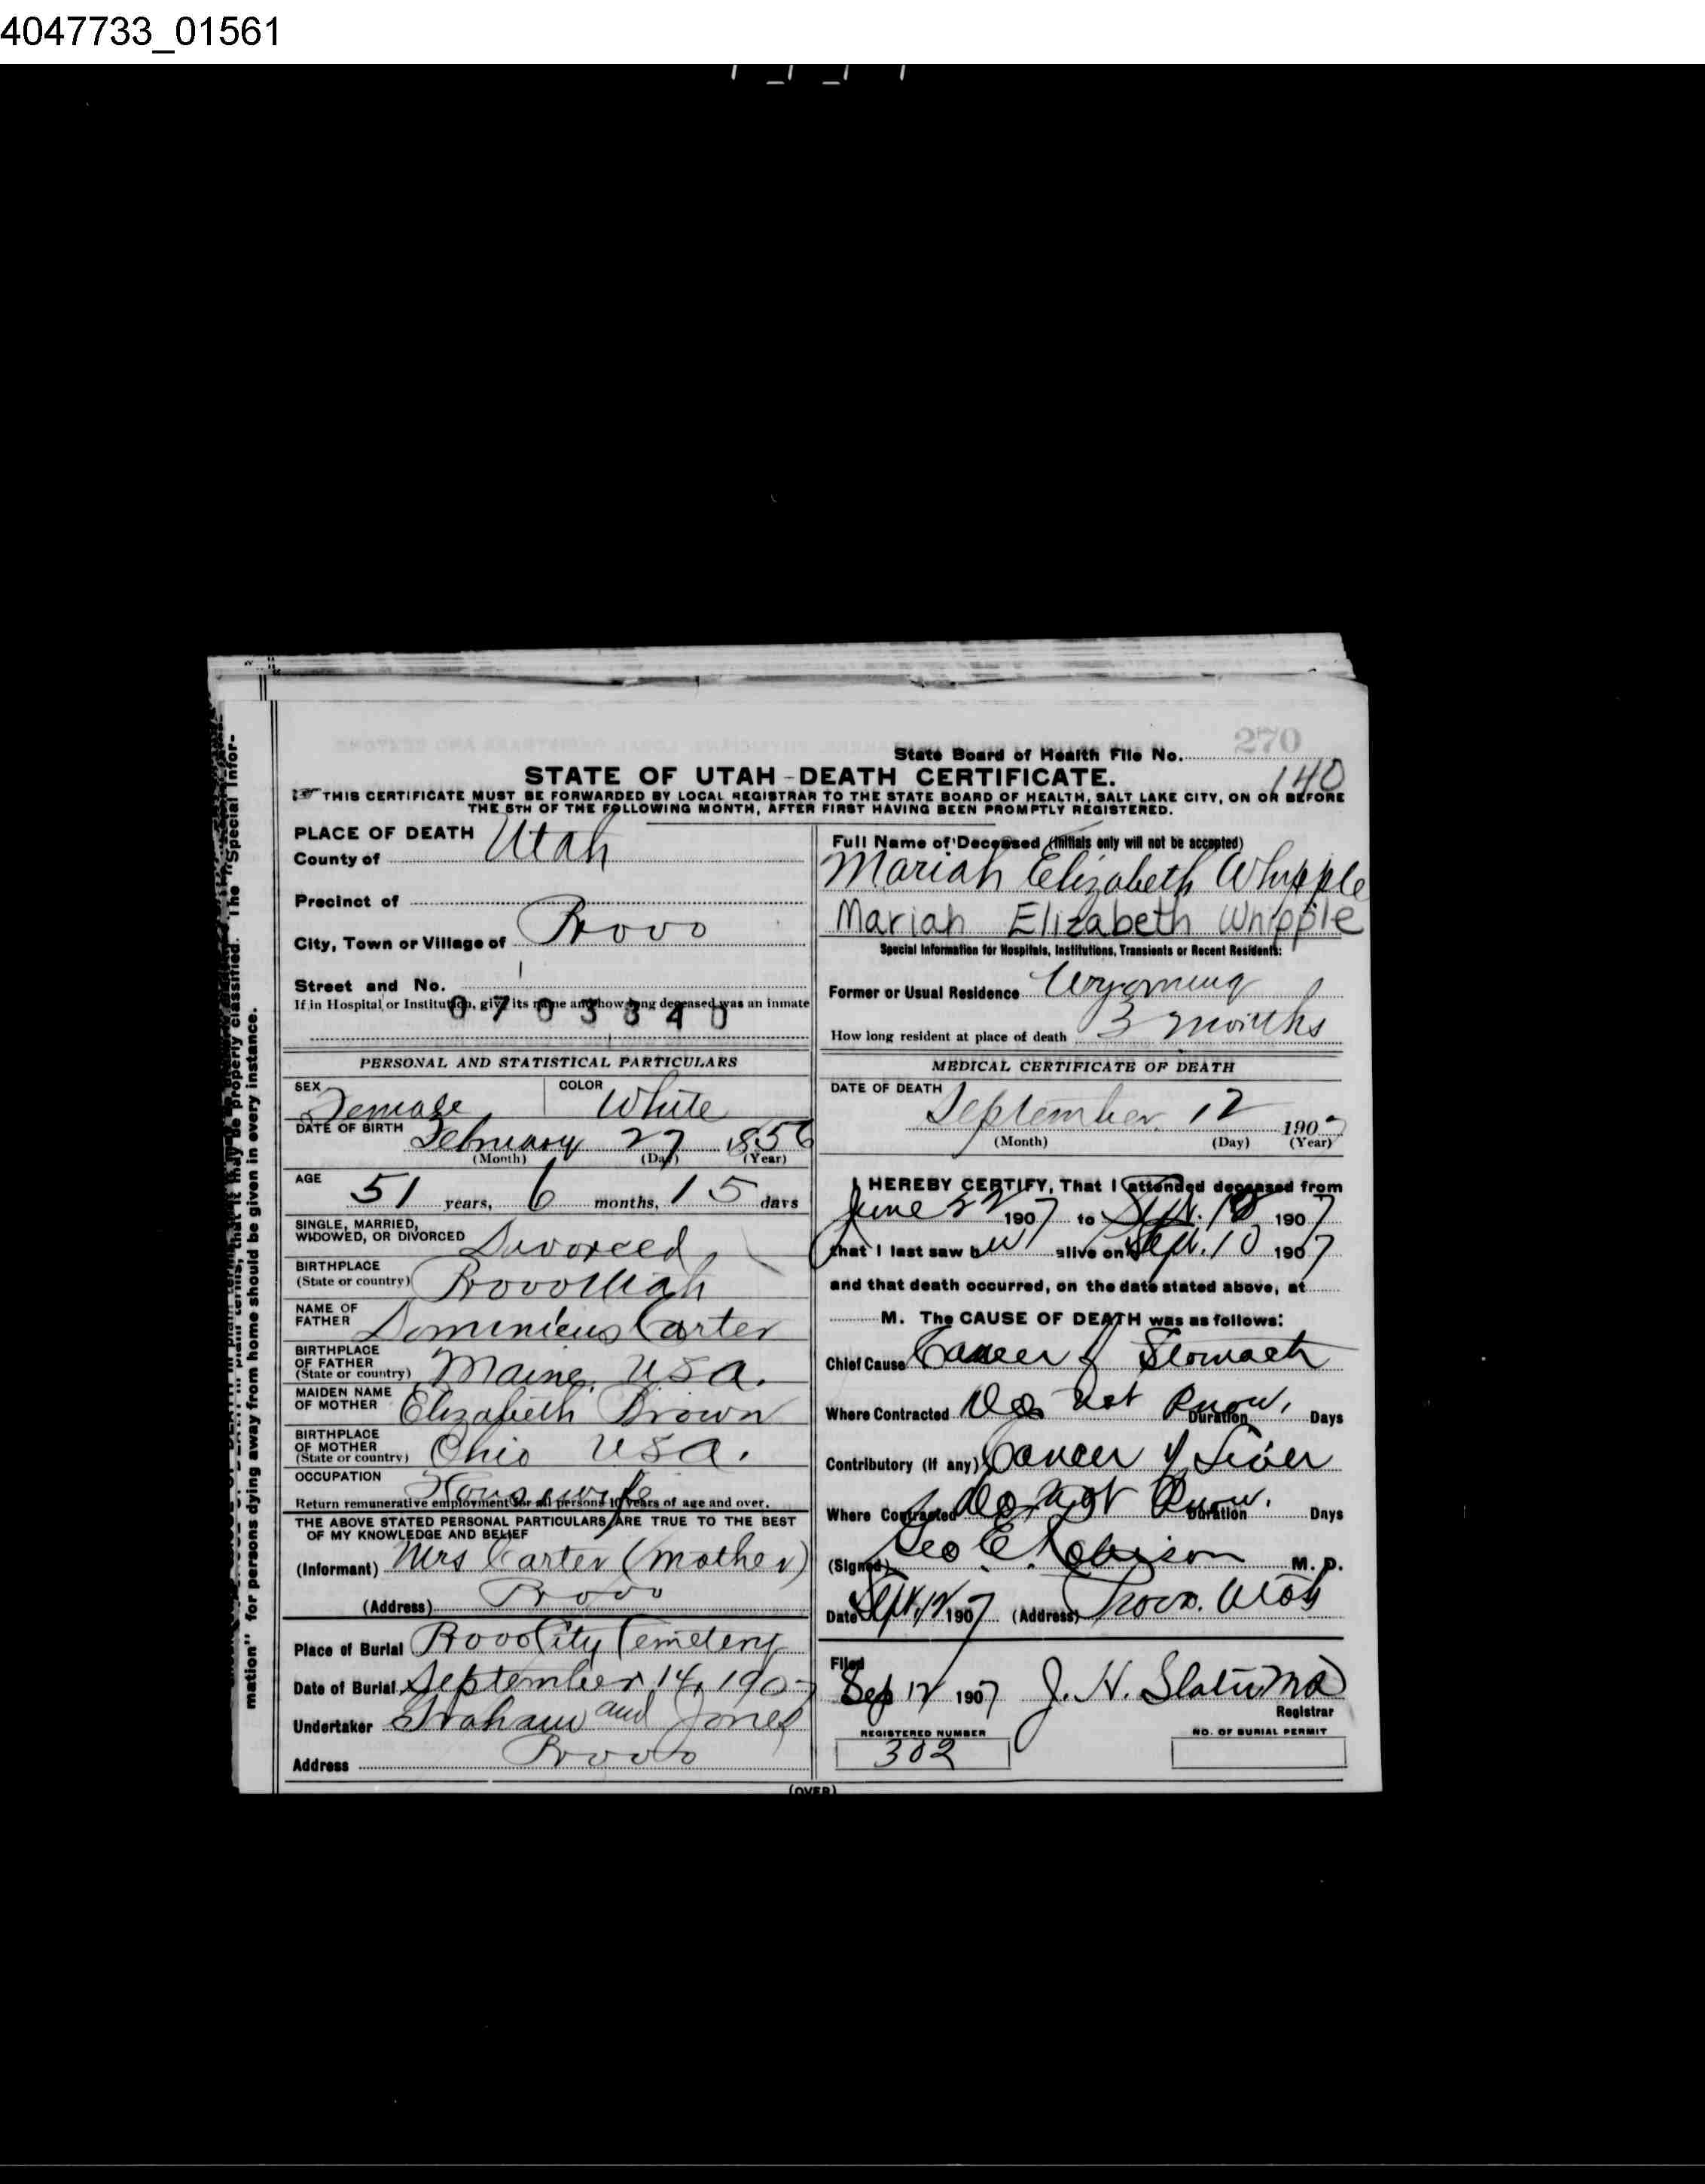 4047733_01561
270
State Board of Health File No.
140
STATE OF UTAH-DEATH CERTIFICATE.
THIS CERTIFICATE MUST BE FORWARDED BY LOCAL REGISTRAR TO THE STATE BOARD OF HEALTH, SALT LAKE CITY, ON OR BEFORE
THE 5TH OF THE FOLLOWING MONTH, AFTER FIRST HAVING BEEN PROMPTLY REGISTERED.
PLACE OF DEATH
County of Utah
Precinct of
City, Town or Village of Provo
Street and No.
If in Hospital or Institution, give its name and how long deceased was an inmate
0703340
PERSONAL AND STATISTICAL PARTICULARS
SEX Female COLOR White
DATE OF BIRTH February 27 1856
(Month) (Day) (Year)
AGE 51 years, 6 months, 15 days
SINGLE, MARRIED,
WIDOWED, OR DIVORCED Divorced
BIRTHPLACE
(State or country) Provo Utah
NAME OF
FATHER Dominicus Carter
BIRTHPLACE
OF FATHER
(State or country) Maine, USA.
MAIDEN NAME
OF MOTHER Elizabeth Brown
BIRTHPLACE
OF MOTHER
(State or country) Ohio USA.
OCCUPATION Housewife
Return remunerative employment for all persons 10 years of age and over.
THE ABOVE STATED PERSONAL PARTICULARS ARE TRUE TO THE BEST
OF MY KNOWLEDGE AND BELIEF
(Informant) Mrs Carter (mother)
(Address) Provo
Place of Burial Provo City Cemetery
Date of Burial September 14, 1907
Undertaker Graham and Jones
Address Provo
Full Name of Deceased (Initials only will not be accepted)
Mariah Elizabeth Whipple
Mariah Elizabeth Whipple
Special Information for Hospitals, Institutions, Transients or Recent Residents:
Former or Usual Residence Wyoming
How long resident at place of death 3 months
MEDICAL CERTIFICATE OF DEATH
DATE OF DEATH
September 12 1907
(Month) (Day) (Year)
I HEREBY CERTIFY, That I attended deceased from
June 22 1907 to Sept. 10 1907
that I last saw her alive on Sept. 10 1907
and that death occurred, on the date stated above, at
M. The CAUSE OF DEATH was as follows:
Chief Cause Cancer of Stomach
Where Contracted Do not Know. Duration Days
Contributory (if any) Cancer of Liver
Where Contracted Do not Know. Duration Days
(Signed) Geo E. Robison M. D.
Date Sept. 12 1907 (Address) Provo. Utah
Filed
Sep 12 1907 J. H. Slater MD
Registrar
REGISTERED NUMBER
302
NO. OF BURIAL PERMIT
(OVER)
properly classified. The "Special Infor-
mation" for persons dying away from home should be given in every instance.